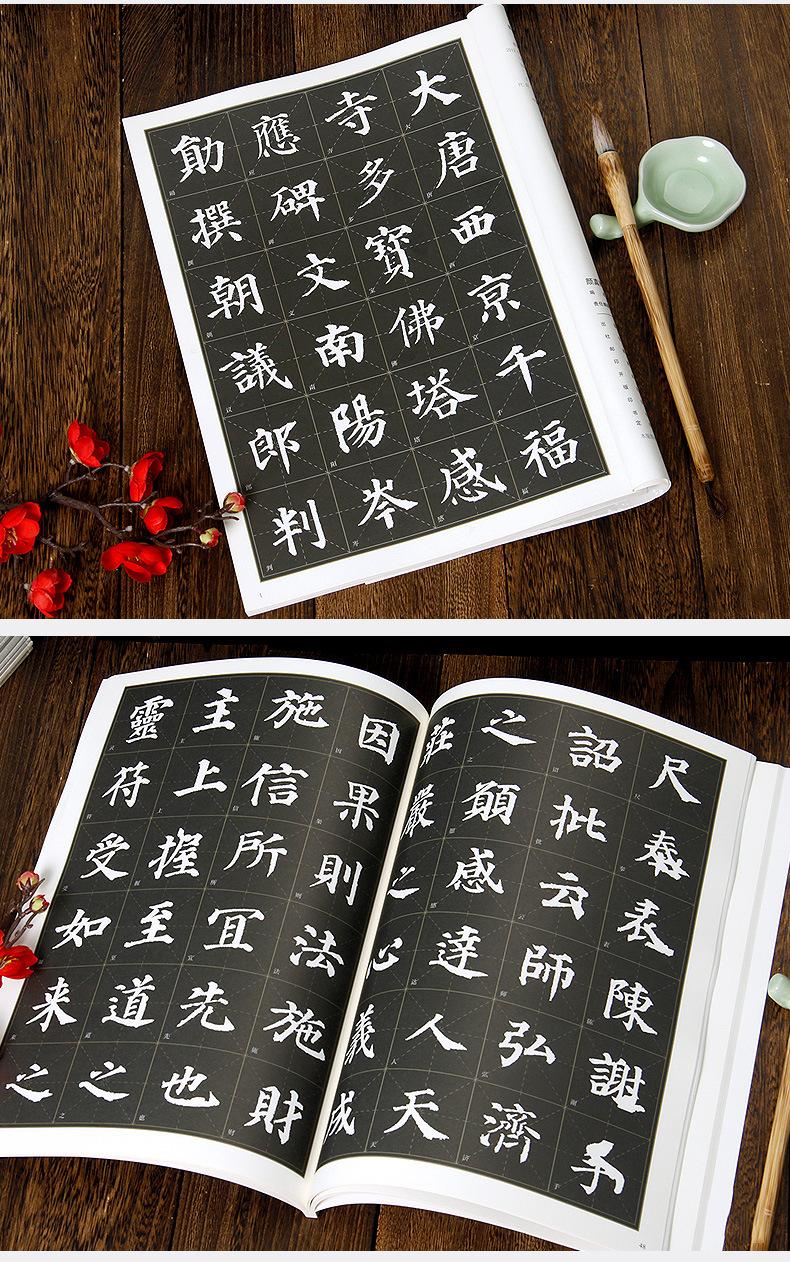 大唐西京千福
寺多寶佛塔感
應碑文南陽岑
勛撰朝議郎判
尺奉表陳謝手
詔批云師弘濟
之願感達人天
莊嚴之心義成
因果則法施財
施信所冝先也
主上握至道之
靈符受如来之